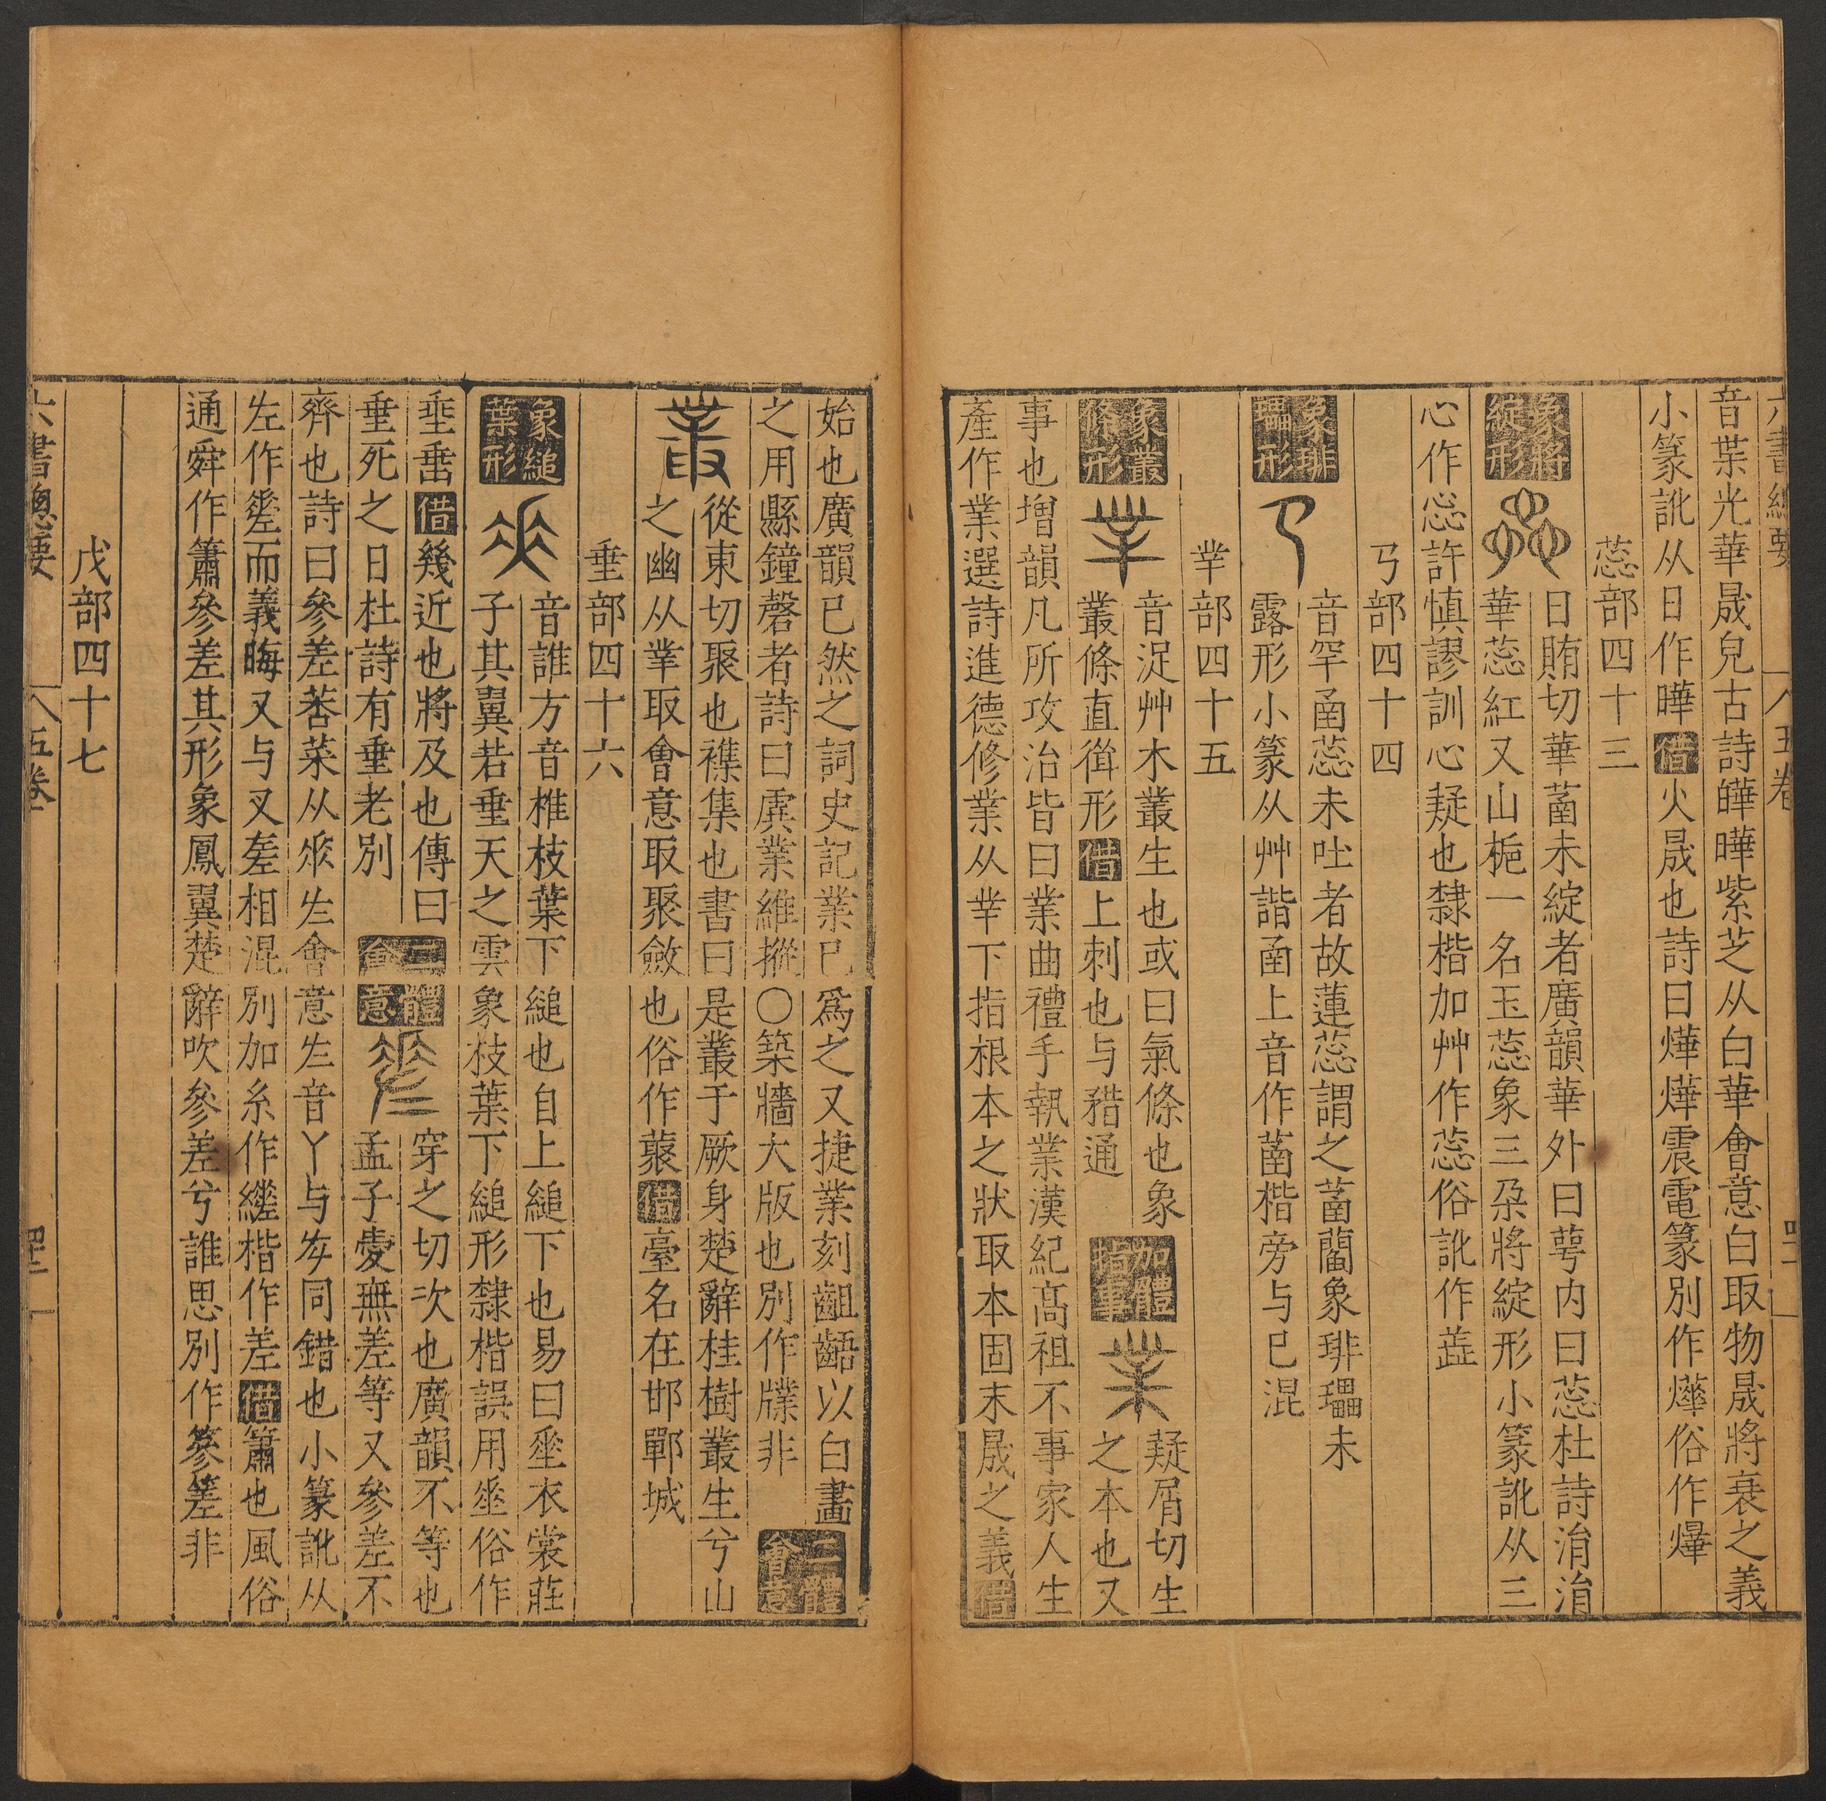 六書總要 五卷 四十一
音㬎光華晟皃古詩皣曄紫芝从白華會意白取物晟將衰之義
小篆訛从日作曄借火晟也詩曰燁燁震電篆別作爗俗作爗
蕊部四十三
象將綻形
日賄切華菡未綻者廣韻華外曰萼内曰蕊杜詩㳙㳙
華蕊紅又山梔一名玉蕊象三朶將綻形小篆訛从三
心作惢許慎謬訓心疑也隸楷加艸作蕊俗訛作蕋
㔾部四十四
象琲㻴形
音罕圅蕊未吐者故蓮蕊謂之菡藺象琲㻴未
露形小篆从艸諧圅上音作菡楷旁与巳混
丵部四十五
象叢條形
音浞艸木叢生也或曰氣條也象
叢條直䧹形借上刺也与㹱通
加體指事
疑屑切生
之本也又
事也增韻凡所攻治皆曰業曲禮手執業漢紀高祖不事家人生
產作業選詩進德修業从丵下指根本之狀取本固末晟之義借
始也廣韻已然之詞史記業已爲之又捷業刻齟齬以白畫
之用縣鐘磬者詩曰虡業維摐〇築牆大版也別作牒非
二體會意
從東切聚也襍集也書曰是叢于厥身楚辭桂樹叢生兮山
之幽从丵取會意取聚斂也俗作藂借臺名在邯鄲城
垂部四十六
象縋葉形
音誰方音椎枝葉下縋也自上縋下也易曰垂衣裳莊
子其翼若垂天之雲象枝葉下縋形隸楷誤用埀俗作
埀𡍮借幾近也將及也傳曰
垂死之日杜詩有垂老別
二體會意
穿之切次也廣韻不等也
孟子愛無差等又參差不
齊也詩曰參差荇菜从𠂹𠂇會意𠂇音丫与㚔同錯也小篆訛从
左作㕙而義晦又与叉差相混別加糸作縒楷作差借簫也風俗
通舜作簫參差其形象鳳翼楚辭吹參差兮誰思別作篸𥰭非
戊部四十七
六書總要 五卷 四十一